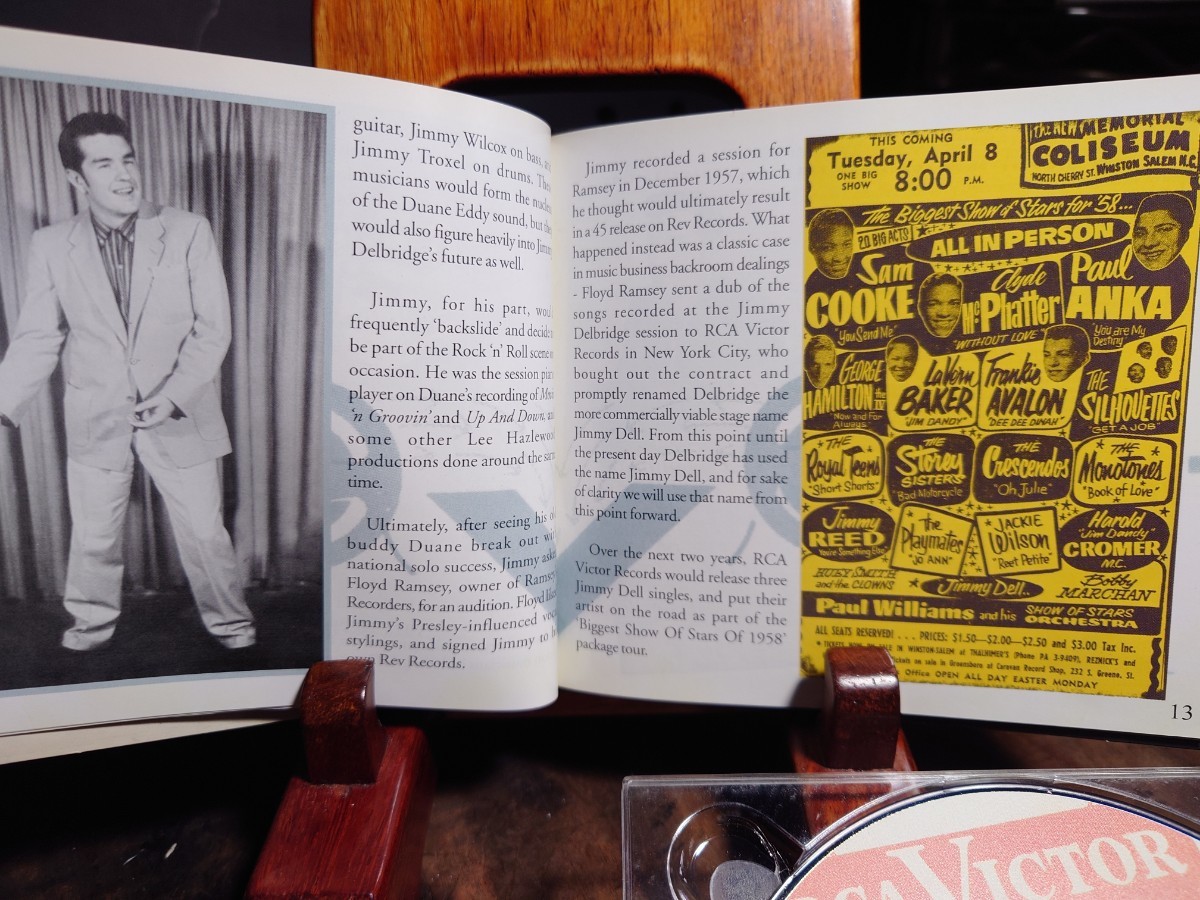 guitar, Jimmy Wilcox on bass,
Jimmy Troxel on drums.
musicians would form the
of the Duane Eddy sound, but
would also figure heavily into
Delbridge's future as well.
Jimmy, for his part,
frequently 'backslide' and
be part of the Rock 'n' Roll scene
occasion. He was the session
player on Duane's recording of
'n Groovin' and Up And Down,
some other Lee
productions done around the
time.
Ultimately, after seeing his
buddy Duane break out
national solo success, Jimmy
Floyd Ramsey, owner of
Recorders, for an audition. Floyd
Jimmy's Presley-influenced
stylings, and signed Jimmy to
own Rev Records.
Jimmy recorded a session for
Ramsey in December 1957, which
he thought would ultimately result
in a 45 release on Rev Records. What
happened instead was a classic case
in music business backroom dealings
- Floyd Ramsey sent a dub of the
songs recorded at the Jimmy
Delbridge session to RCA Victor
Records in New York City, who
bought out the contract and
promptly renamed Delbridge the
more commercially viable stage name
Jimmy Dell. From this point until
the present day Delbridge has used
the name Jimmy Dell, and for sake
of clarity we will use that name from
this point forward.
Over the next two years, RCA
Victor Records would release three
Jimmy Dell singles, and put their
artist on the road as part of the
'Biggest Show Of Stars Of 1958'
package tour.
THIS COMING
Tuesday, April 8
ONE BIG SHOW 8:00 P.M.
THE NEW MEMORIAL
COLISEUM
NORTH CHERRY ST. WINSTON SALEM N.C.
The Biggest Show of Stars for '58...
20 BIG ACTS
ALL IN PERSON
Sam
COOKE
"You Send Me"
Clyde
McPhatter
"WITHOUT LOVE"
Paul
ANKA
"You are My
Destiny"
GEORGE
HAMILTON the
"Now and For
Always"
LaVern
BAKER
"JIM DANDY"
Frankie
AVALON
"DEE DEE DINAH"
THE
SILHOUETTES
"GET A JOB"
THE
Royal Teens
"Short Shorts"
THE
Storey
SISTERS
"Bad Motorcycle"
THE
Crescendos
"Oh, Julie"
THE
Monotones
"Book of Love"
Jimmy
REED
"You're Something Else"
The
Playmates
"JO ANN"
JACKIE
Wilson
"Reet Petite"
Harold
"Jim Dandy"
CROMER
M.C.
HUEY SMITH
and the CLOWNS
Jimmy Dell..
Bobby
MARCHAN
Paul Williams and his SHOW OF STARS
ORCHESTRA
ALL SEATS RESERVED! . . . PRICES: $1.50—$2.00—$2.50 and $3.00 Tax Inc.
IN WINSTON-SALEM at THALHIMER'S (Phone PA 3-9409), REZNICK'S and
on sale in Greensboro at Caravan Record Shop, 232 S. Greene, St.
Office OPEN ALL DAY EASTER MONDAY
13
VICTOR